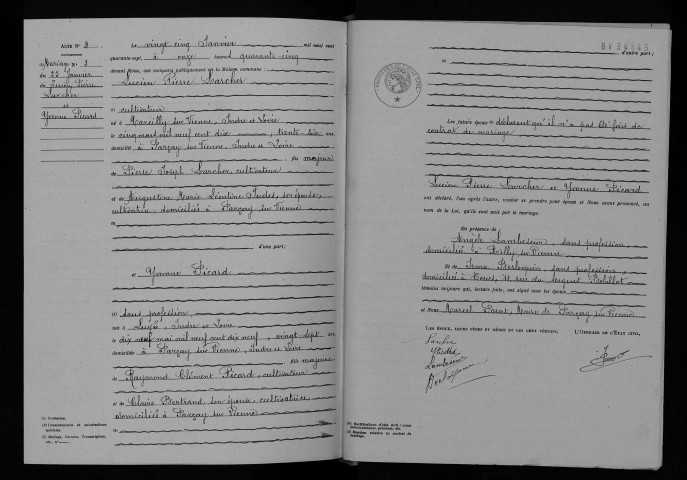 Acte N° 3
Mariage N° 2
du 22 Janvier
Larcher
et
Yvonne Picard
Le vingt cinq Janvier mil neuf cent
quarante-sept, à onze heures quarante cinq
devant Nous, ont comparu publiquement en la Maison commune :
Lucien Pierre Larcher
(1) cultivateur
né à Marcilly sur Vienne, Indre et Loire
le cinq mars mil neuf cent dix, trente six ans,
domicilié à Parçay sur Vienne, Indre et Loire
fils majeur
de Pierre Joseph Larcher, cultivateur
et de Augustine Marie Léontine son épouse,
cultivatrice, domiciliés à Parçay sur Vienne
d'une part;
et Yvonne Picard
(1) sans profession
née à Luzé, Indre et Loire
le dix neuf mai mil neuf cent dix neuf, vingt sept ans
domiciliée à Parçay sur Vienne, Indre et Loire
fille majeure
de Raymond Clément Picard, cultivateur
et de Claire Bertrand son épouse, cultivatrice
domiciliés à Parçay sur Vienne
(1) Profession.
(2) Consentements et autorisations
(3) Mariage, Divorce, Transcription,
etc.
d'autre part;
Les futurs époux déclarent qu'il n'a pas été fait de
contrat de mariage
Lucien Pierre Larcher et Yvonne Picard
ont déclaré, l'un après l'autre, vouloir se prendre pour époux et Nous avons prononcé, au
nom de la Loi, qu'ils sont unis par le mariage.
En présence de
Angèle Lambeseur, sans profession,
domiciliée à Rilly sur Vienne
Et de Irma Berloquin, sans profession,
domiciliée à Tours, rue du Sergent Bobillot
témoins majeurs qui, lecture faite, ont signé avec les époux
et Nous Marcel Maire de Parçay sur Vienne
LES ÉPOUX, LEURS PÈRES ET MÈRES ET LES DEUX TÉMOINS,
L'OFFICIER DE L'ÉTAT CIVIL,